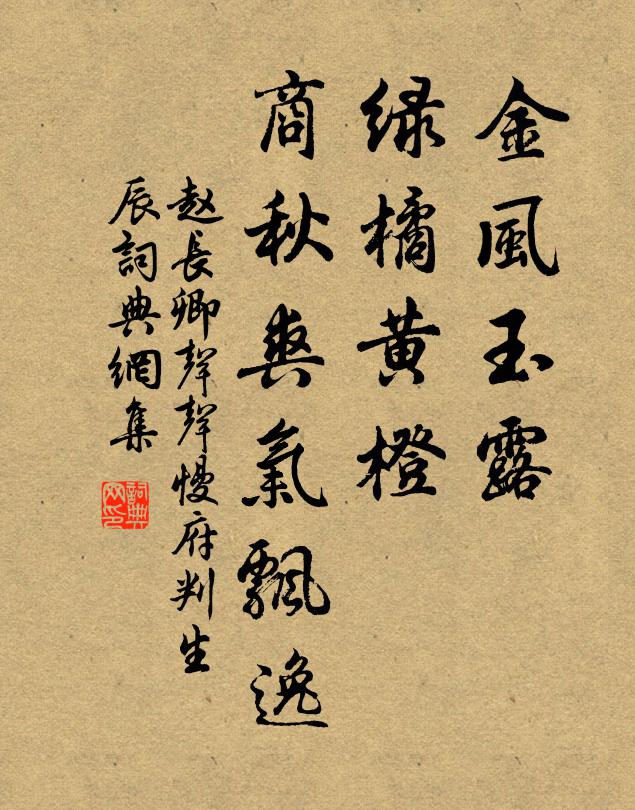 金風玉露
绿橘黄橙
商秋爽氣飄逸
赵長卿聲聲慢府判生
辰詞典網集
詞典网印